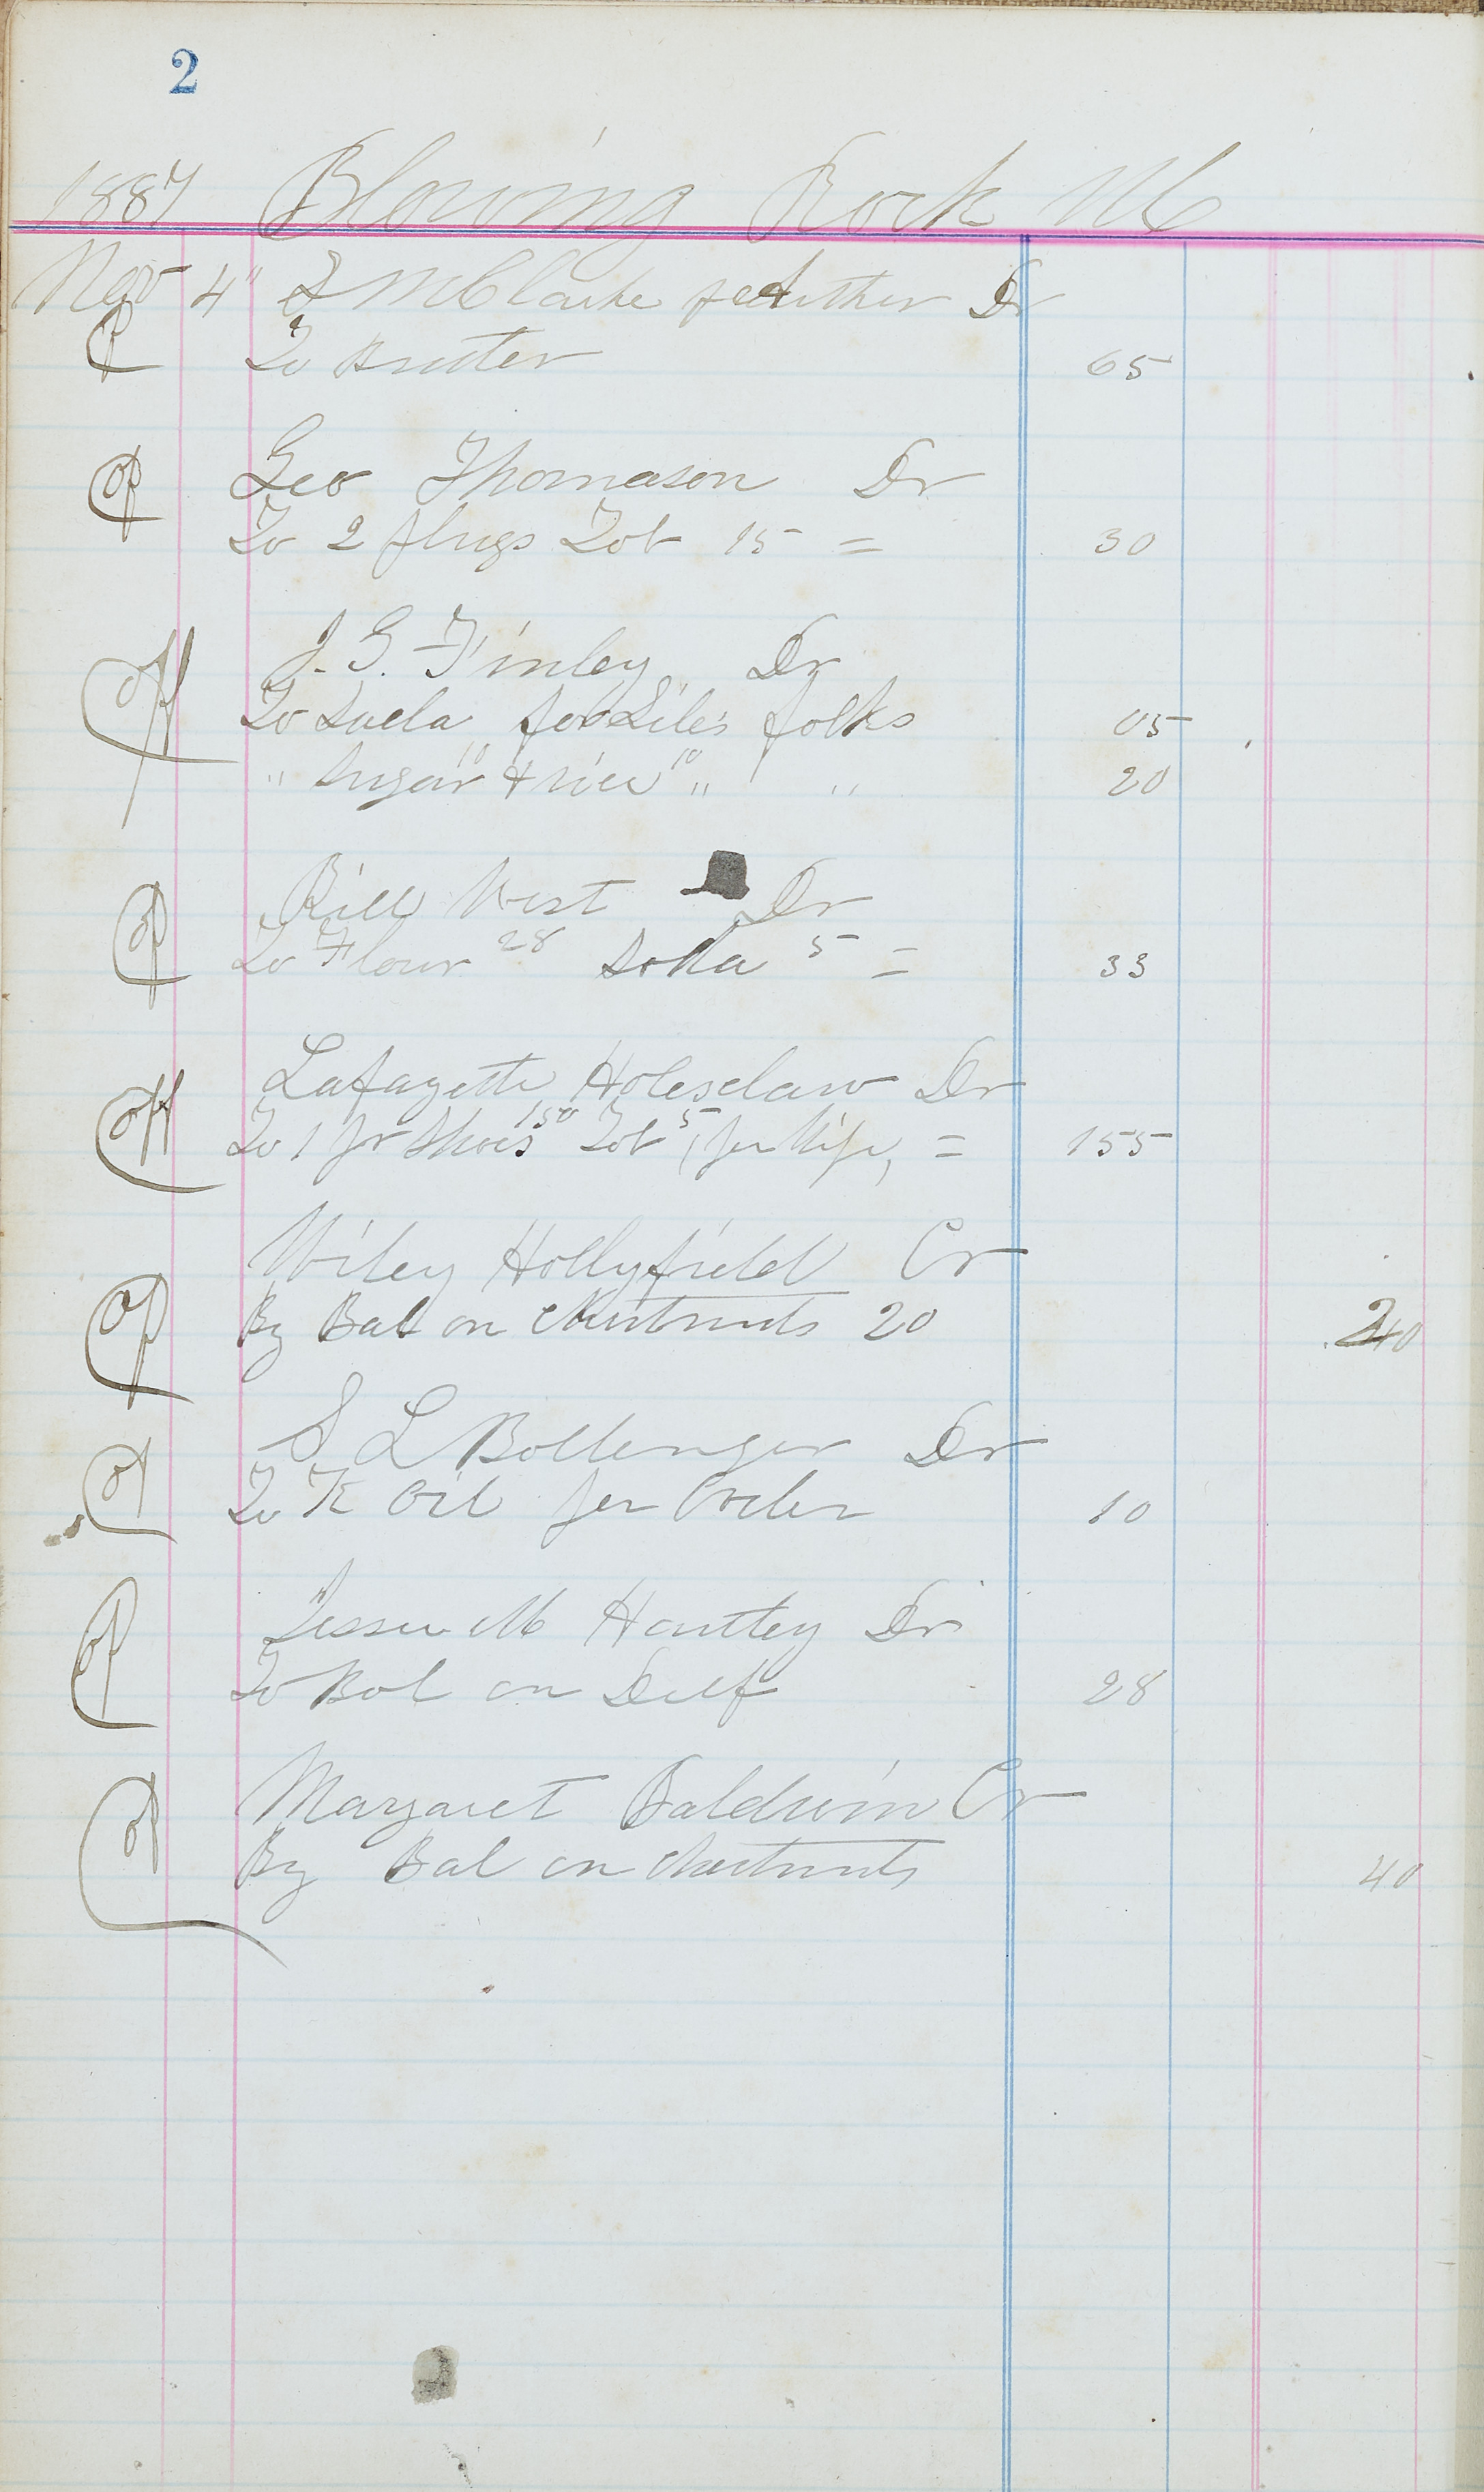 2
1887 Blowing Rock NC
Nov 4" J M Clarke per Arther Dr
To Butter 65
Geo Thomason Dr
To 2 plugs Tob 15 = 30
J. G. Finley Dr
To Soda for Lile's folks 05
" Sugar 10 & rice 10 " " 20
Bill West Dr
To Flour 28 Soda 5 = 33
Lafayette Holesclaw Dr
To 1 pr Shoes 150 Tob 5, per Wife, = 155
Wiley Hollyfield Cr
By Bal on Chestnuts 20 20
S L Bollenger Dr
To K Oil per Order 10
Jesse M Hartley Dr
To Bal on Delf 28
Margaret Baldwin Cr
By Bal on Chestnuts 40